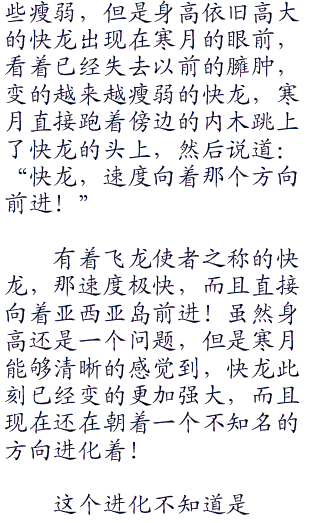 些瘦弱，但是身高依旧高大
的快龙出现在寒月的眼前，
看着已经失去以前的臃肿，
变的越来越瘦弱的快龙，寒
月直接跑着傍边的内木跳上
了快龙的头上，然后说道：
“快龙，速度向着那个方向
前进！”
有着飞龙使者之称的快
龙，那速度极快，而且直接
向着亚西亚岛前进！虽然身
高还是一个问题，但是寒月
能够清晰的感觉到，快龙此
刻已经变的更加强大，而且
现在还在朝着一个不知名的
方向进化着！
这个进化不知道是